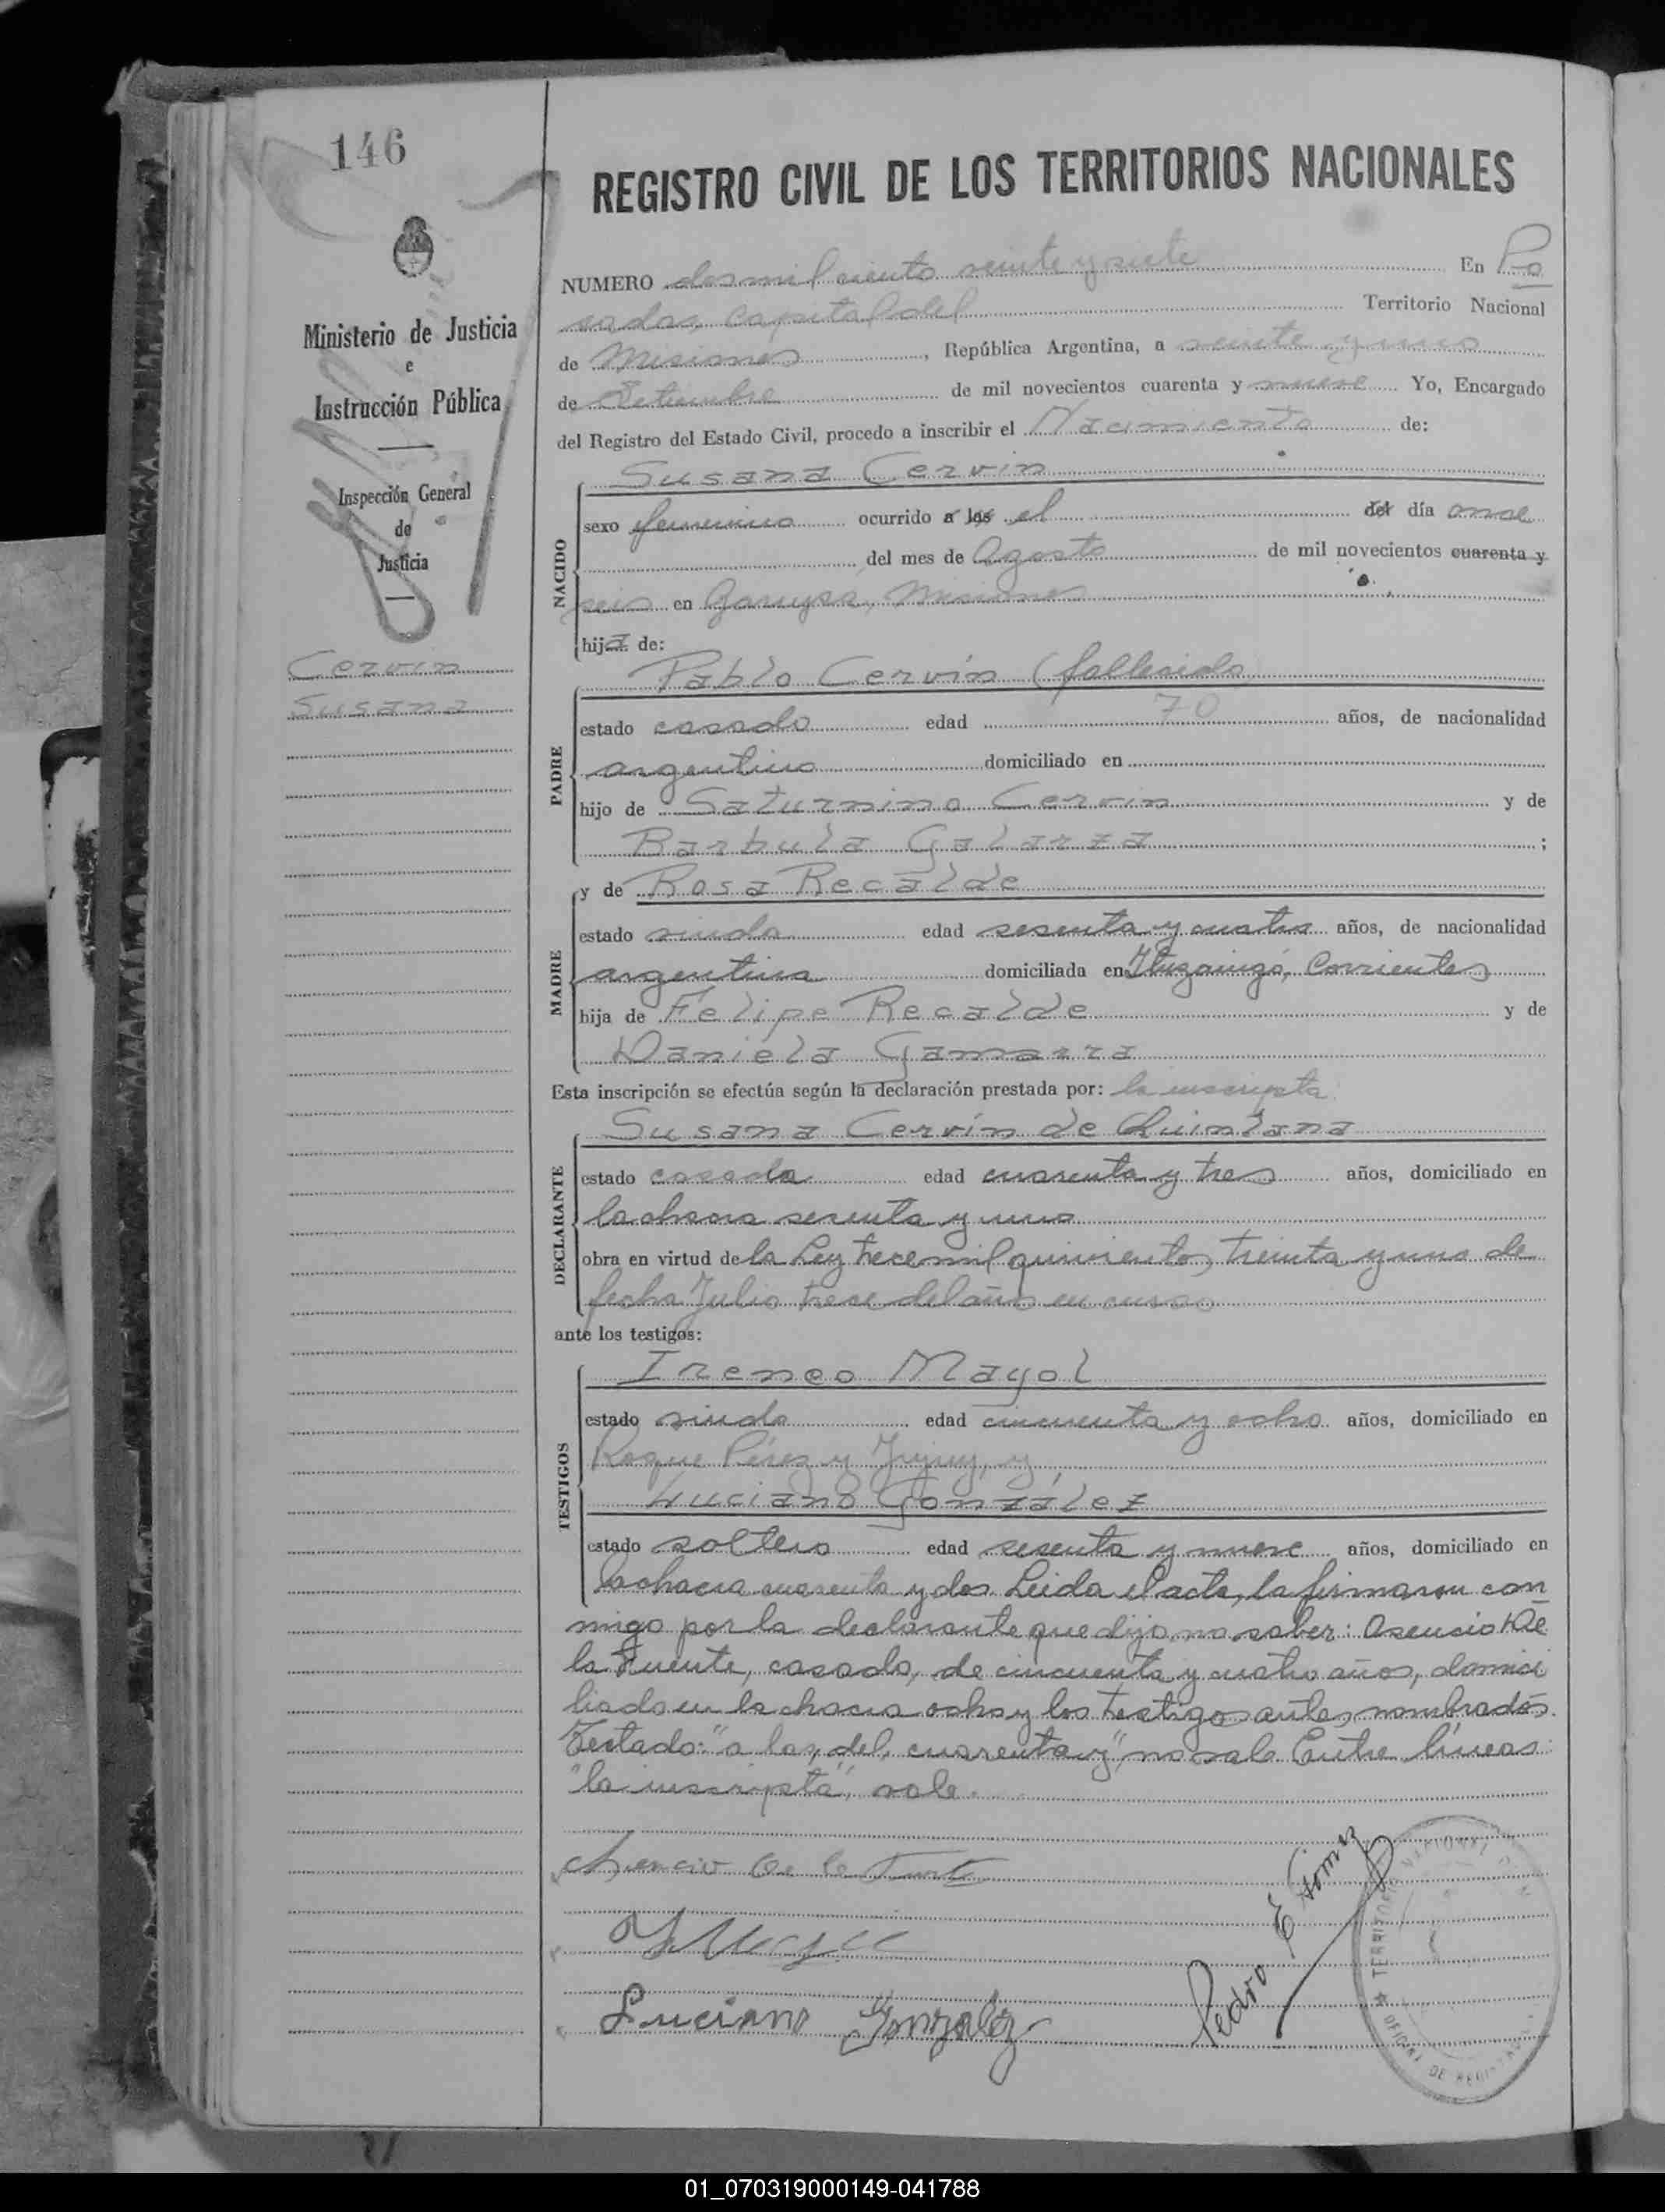 146
REGISTRO CIVIL DE LOS TERRITORIOS NACIONALES
Ministerio de Justicia
e
Instrucción Pública
Inspección General
de
Justicia
Cervin
Susana
NUMERO dos mil ciento veinte y siete En Po
sadas, Capital del Territorio Nacional
de Misiones, República Argentina, a veinte y uno
de Setiembre de mil novecientos cuarenta y nueve Yo, Encargado
del Registro del Estado Civil, procedo a inscribir el Nacimiento de:
Susana Cervin
NACIDO
sexo femenino ocurrido a las el del día once
del mes de Agosto de mil novecientos cuarenta y
seis en Garupá, Misiones
hija de:
Pablo Cervin (fallecido
PADRE
estado casado edad 70 años, de nacionalidad
argentino domiciliado en
hijo de Saturnino Cervin y de
Barbula Galarza ;
y de Rosa Recalde
MADRE
estado viuda edad sesenta y cuatro años, de nacionalidad
argentina domiciliada en Ituzaingó, Corrientes
hija de Felipe Recalde y de
Daniela Gamarra
Esta inscripción se efectúa según la declaración prestada por: la inscripta
Susana Cervin de Quintana
DECLARANTE
estado casada edad cuarenta y tres años, domiciliado en
la chacra sesenta y uno
obra en virtud de la Ley trece mil quinientos treinta y uno de
fecha Julio trece del año en curso
ante los testigos:
Ireneo Mayol
TESTIGOS
estado viudo edad cincuenta y ocho años, domiciliado en
Roque Pérez y Jujuy, y
Luciano González
estado soltero edad sesenta y nueve años, domiciliado en
la chacra cuarenta y dos. Leida el acta, la firmaron con
migo por la declarante que dijo no saber: Asencio De
la Fuente, casado, de cincuenta y cuatro años, domici
liado en la chacra ocho y los testigos antes nombrados.
Testado: "a las, del, cuarenta y", no vale. Entre líneas:
"la inscripta", vale.
Asencio De la Fuente
Luciano Gonzalez
Pedro E Gomez
01_070319000149-041788